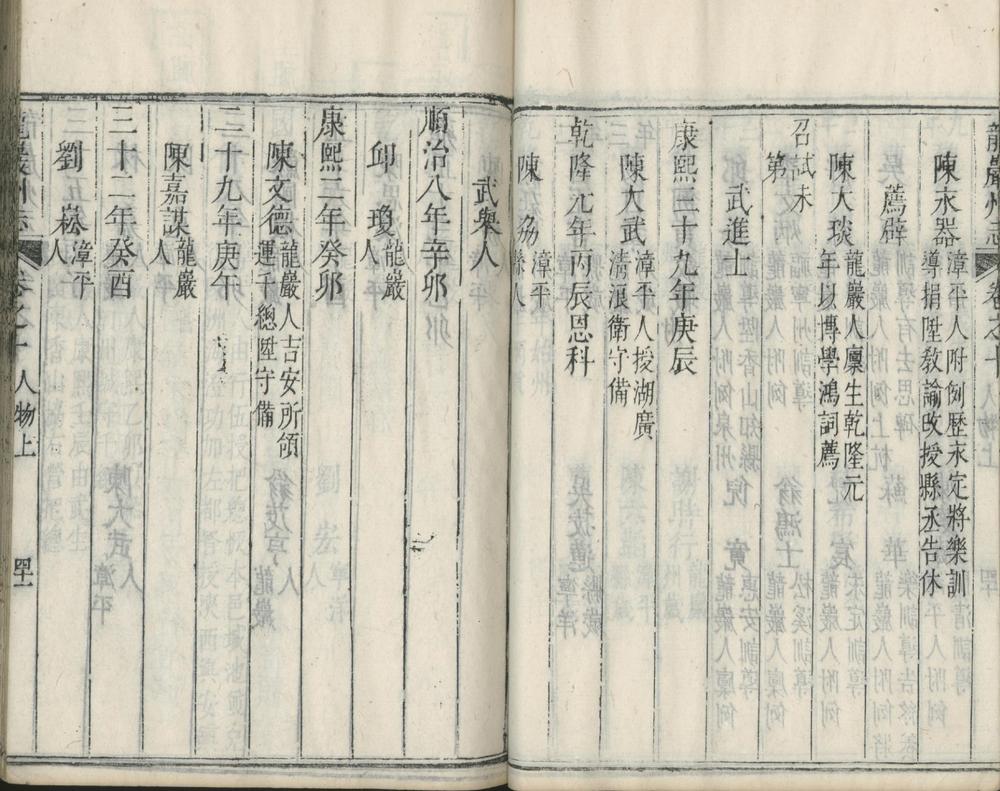 龍巖州志 卷之十 人物上
陳永器 漳平人附例歷永定將樂訓
導捐陞敎諭改授縣丞告休
薦辟
陳大琰 龍巖人廩生乾隆元
年以博學鴻詞薦
召試未
第
武進士
康熙三十九年庚辰
陳大武 漳平人授湖廣
清浪衛守備
乾隆元年丙辰恩科
陳 漳平
縣人
武舉人
順治八年辛卯
邱瓊 龍巖
人
康熙二年癸卯
陳文德 龍巖人吉安所領
運千總陞守備
二十九年庚午
陳嘉謀 龍巖
人
三十二年癸酉
劉崧 漳平
人
龍巖州志 卷之十 人物上